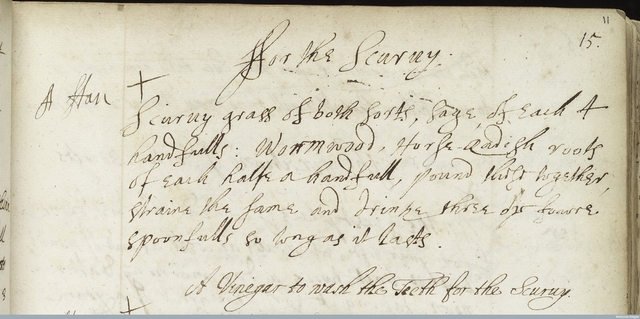 11
15.
ffor the Scurvy.
A Stan
Scurvy grass of both sorts, sage, of each 4
handfulls: Wormwood, Horse Radish roots
of each halfe a handfull, pound these together,
straine the same and drinke three or fowre
spoonfulls so long as it lasts.
A Vinegar to wash the Teeth for the Scurvy.